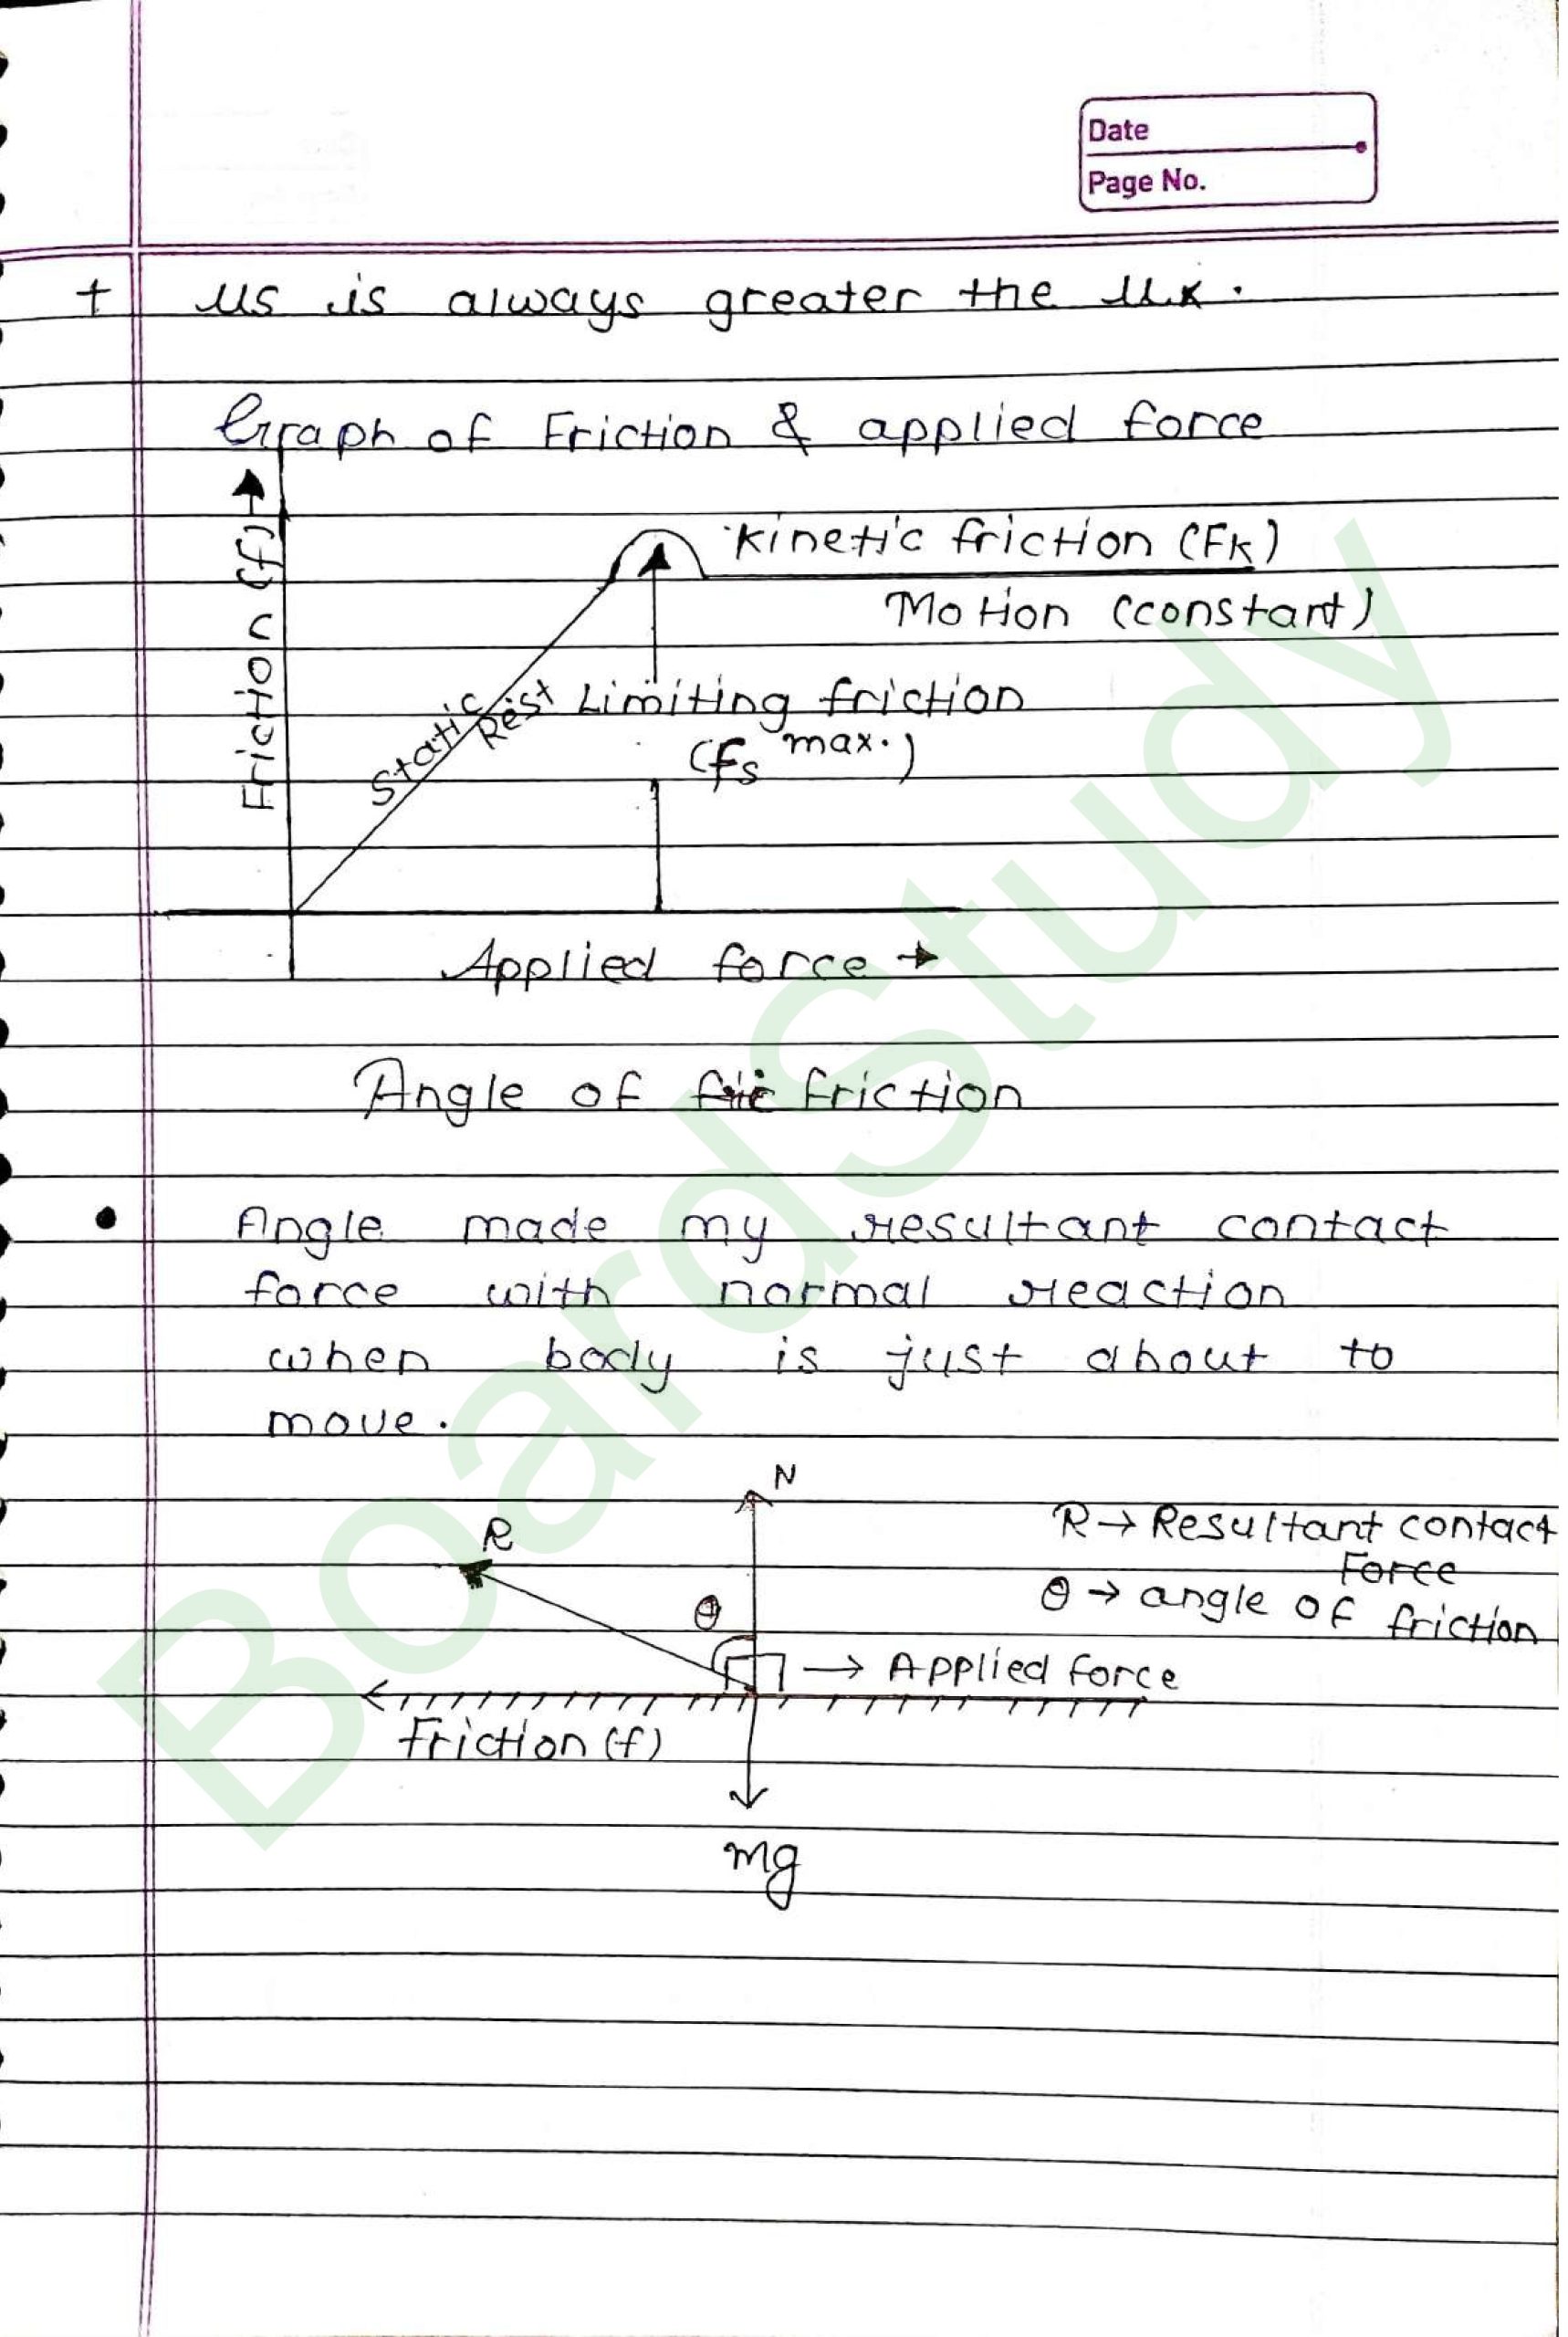 Date
Page No.
+ μs is always greater the μk.
Graph of Friction & applied force
Friction (f) →
Kinetic friction (Fk)
Motion (constant)
Static
Rest
Limiting friction
(fs max.)
Applied force →
Angle of fric friction
• Angle made my resultant contact
force with normal reaction
when body is just about to
move.
N
R
R → Resultant contact
Force
θ
θ → angle of friction
→ Applied force
Friction (f)
mg
BoardStudy